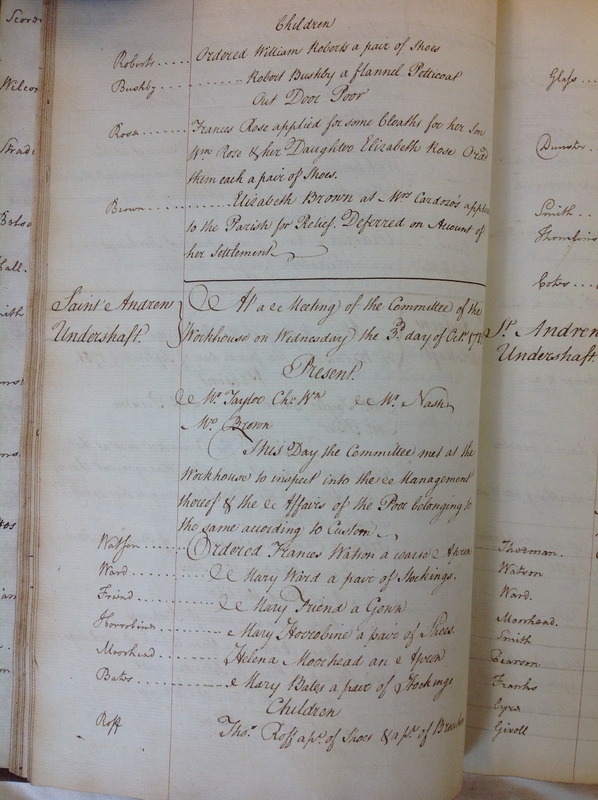 Children
Roberts..... Ordered William Roberts a pair of Shoes
Bushby......... Robert Bushby a flannel Petticoat
Out Door Poor
Rose......... Frances Rose applied for some Cloaths for her Son
Wm Rose & her Daughter Elizabeth Rose Ord
them each a pair of Shoes.
Brown......... Elizabeth Brown at Mrs Cardozo's applied
to the Parish for Relief. Deferred on Account of
her Settlement
Saint Andrew
Undershaft.
At a Meeting of the Committee of the
Workhouse on Wednesday the 3d. day of Octr.
Present.
Mr. Taylor Ch: Wn Mr. Nash
Mr. Brown
This Day the Committee met at the
Workhouse to inspect into the Management
thereof & the Affairs of the Poor belonging to
the same according to Custom
Watson....... Ordered Frances Watson a coarse Apron
Ward......... Mary Ward a pair of Stockings.
Friend......... Mary Friend a Gown
Horrobine......... Mary Horrobine a pair of Shoes.
Moorhead......... Helena Moorhead an Apron
Bates......... Mary Bates a pair of Stockings
Children
Roff Thos. Roff a pr. of Shoes & a pr. of
Glass....
Dunster.
Smith..
Thomlins
Coter...
St. Andrew
Undershaft
Thorman.
Watson
Ward.
Moorhead.
Smith
Pearson
Franks
Eyre
Scord
Wilcox